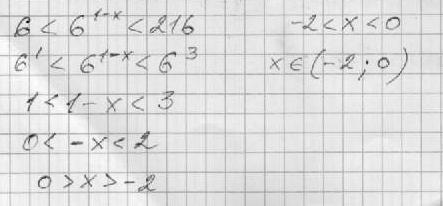 6 < 6^{1-x} < 216
6^1 < 6^{1-x} < 6^3
1 < 1 - x < 3
0 < -x < 2
0 > x > -2
-2 < x < 0
x ∈ (-2; 0)